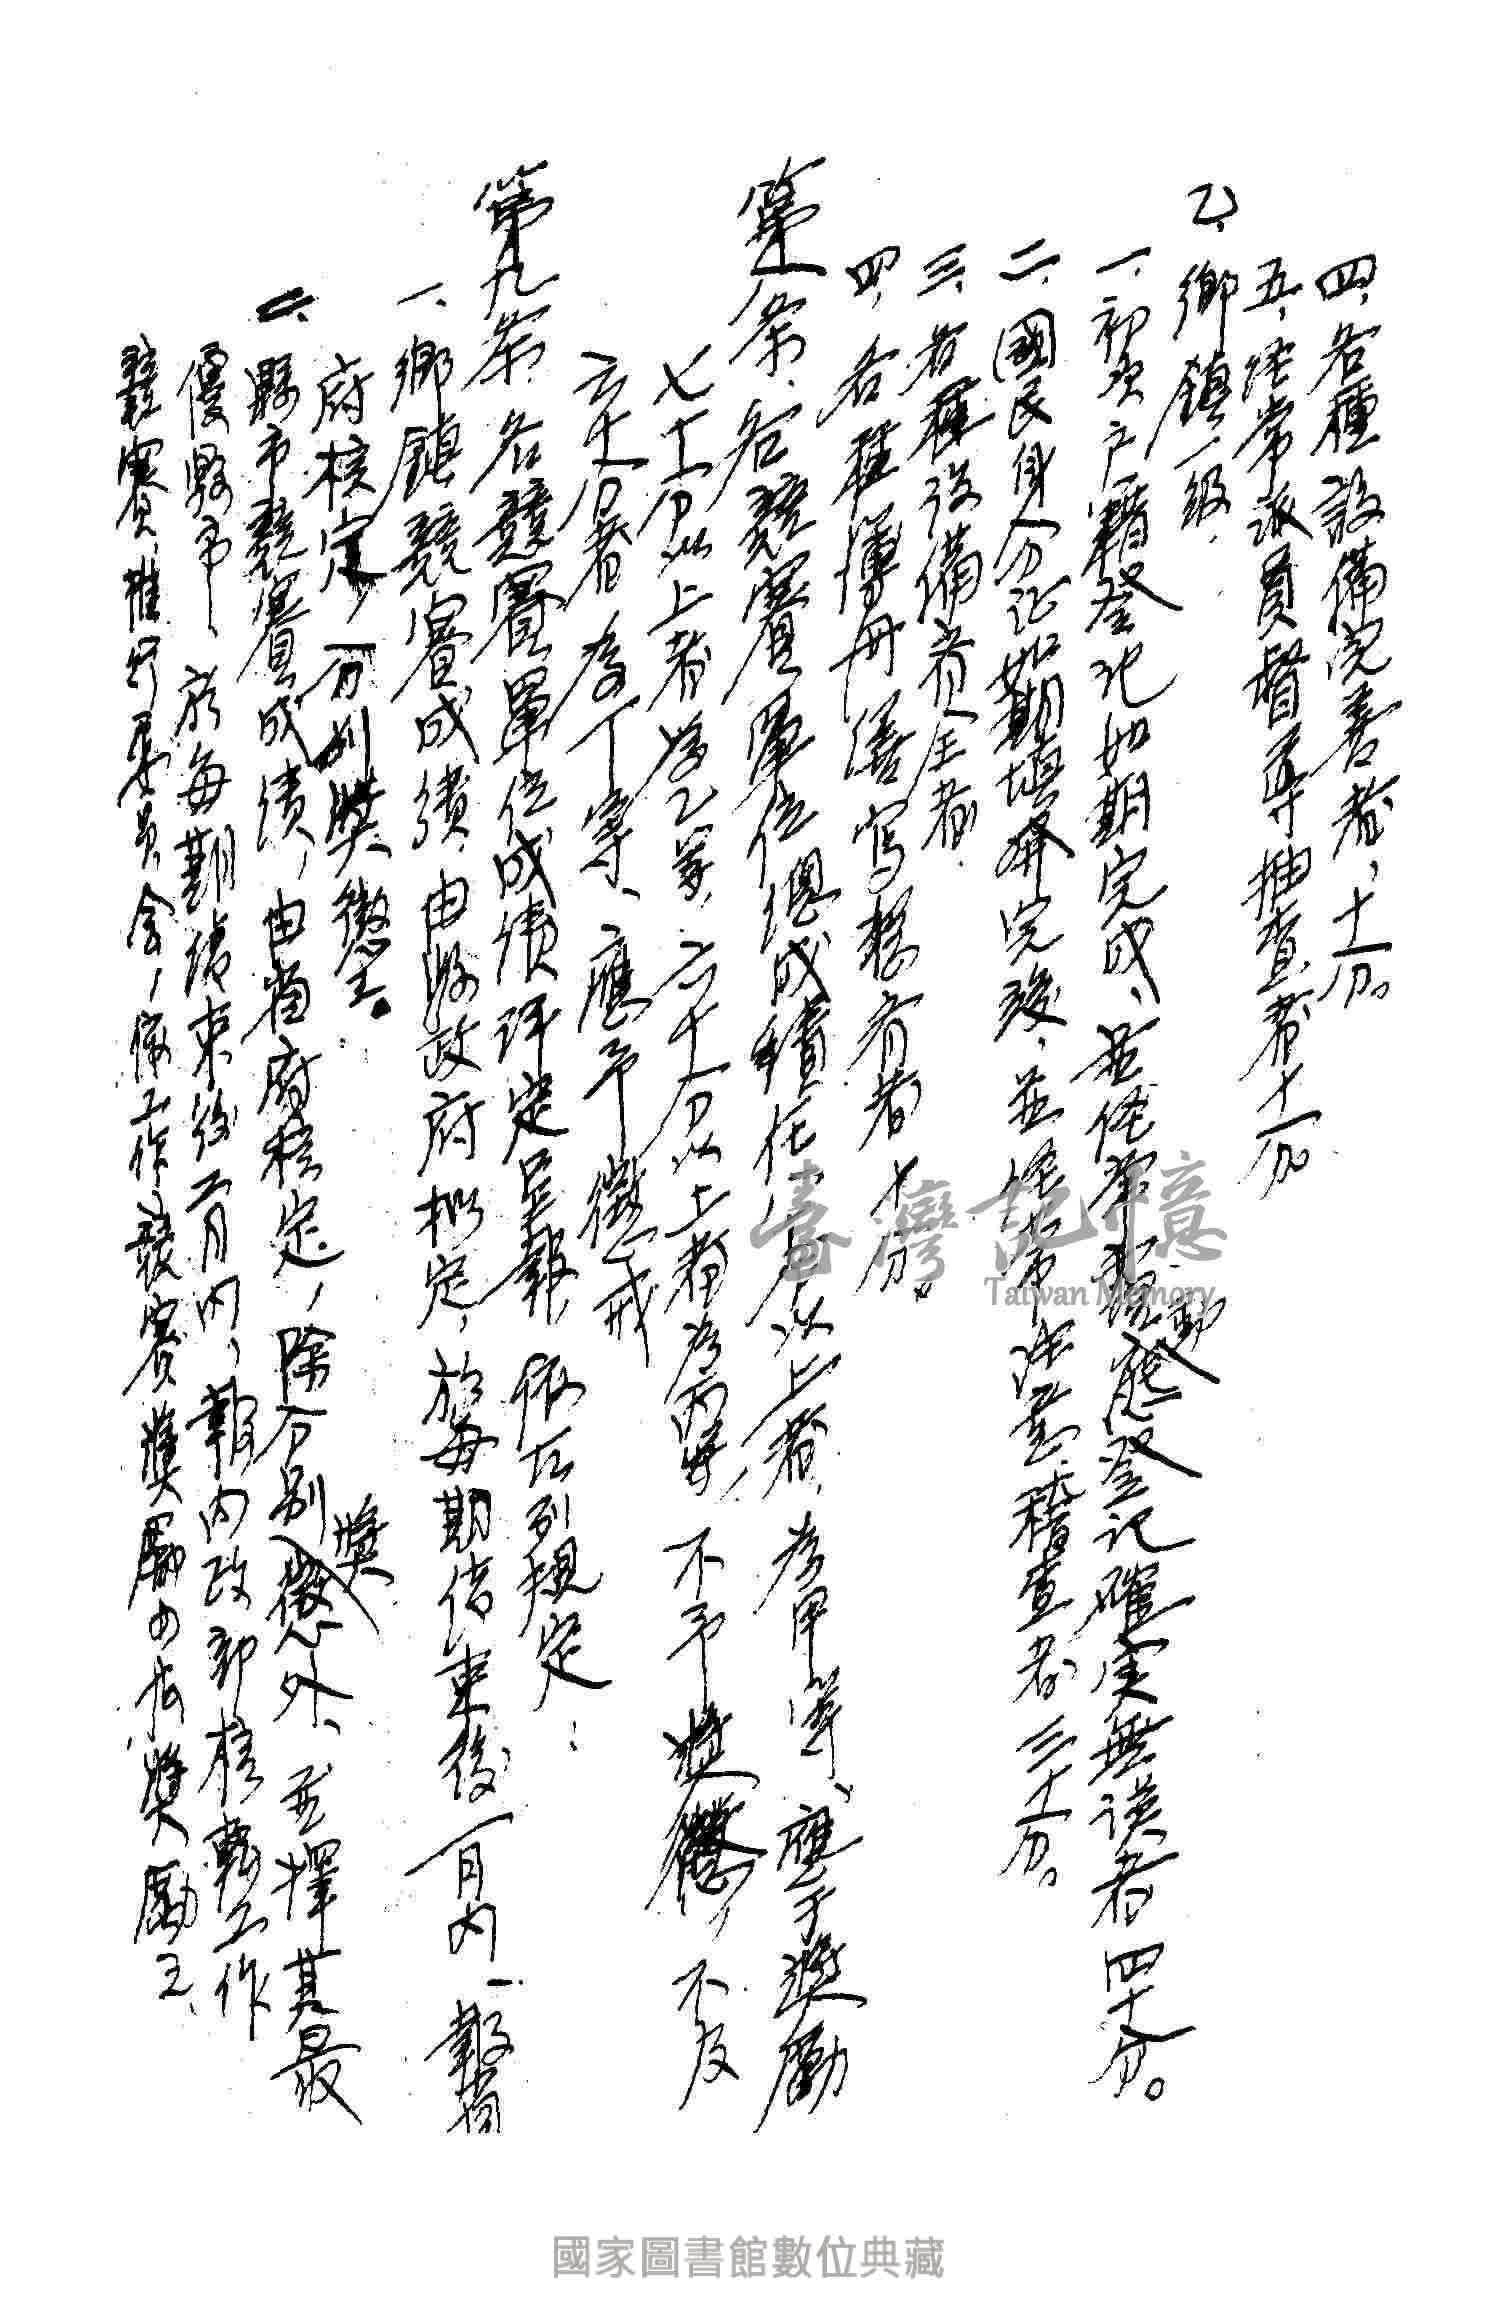 四、各種設備完善者，十分。
五、經常派員督導抽查者十分。
乙、鄉鎮一級．
一、初次户籍登記如期完成、並經常動態登記確实無誤者四十分。
二、國民身分証如期填發完竣、並經常注意稽查者三十分。
三、各種設備齊全者．
四、各種簿册繕写整齊者十分。
第八条、各競賽單位總成績在八十分以上者，為甲等、應予奬勵
七十分以上者為乙等，六十分以上者為丙等，不予奬懲，不及
六十分者為丁等、應予懲戒
第九条 各競賽單位成績評定呈報依左列規定：
一、鄉鎮競賽成績由縣政府核定，於每期結束後一月内、報省
府核定，分别奬懲之。
二、縣市競賽成績，由省府核定，除分别奬懲外、並擇其最
優縣市、於每期結束後二月内，報内政部核轉工作
競賽推行委員會，依工作競賽奬勵办法奬勵之、
臺灣記憶
Taiwan Memory
國家圖書館數位典藏